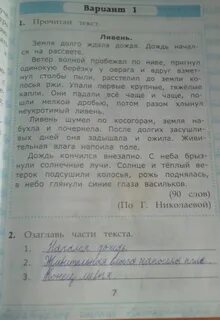 Вариант 1
1. Прочитай текст.
Ливень.
Земля долго ждала дождя. Дождь начал-
ся на рассвете.
Ветер волной пробежал по ниве, пригнул
одинокую берёзку у оврага и вдруг взмет-
нул столбы пыли, расстелил до земли коло-
сья ржи. Упали первые крупные, тяжёлые
капли. Они падали всё чаще и чаще, по-
шли мелкой дробью, потом разом хлынул
неукротимый ливень.
Ливень шумел по косогорам, земля на-
бухла и почернела. После долгих засушли-
вых дней она задышала и ожила. Живи-
тельная влага напоила поле.
Дождь кончился внезапно. С неба брыз-
нули солнечные лучи. Солнце и тёплый ве-
терок подсушили колосья, рожь поднялась,
а в небо глянули синие глаза васильков.
(90 слов)
(По Г. Николаевой)
2. Озаглавь части текста.
1. Начался дождь
2. Живительная влага напоила поле
3. Конец ливня
7